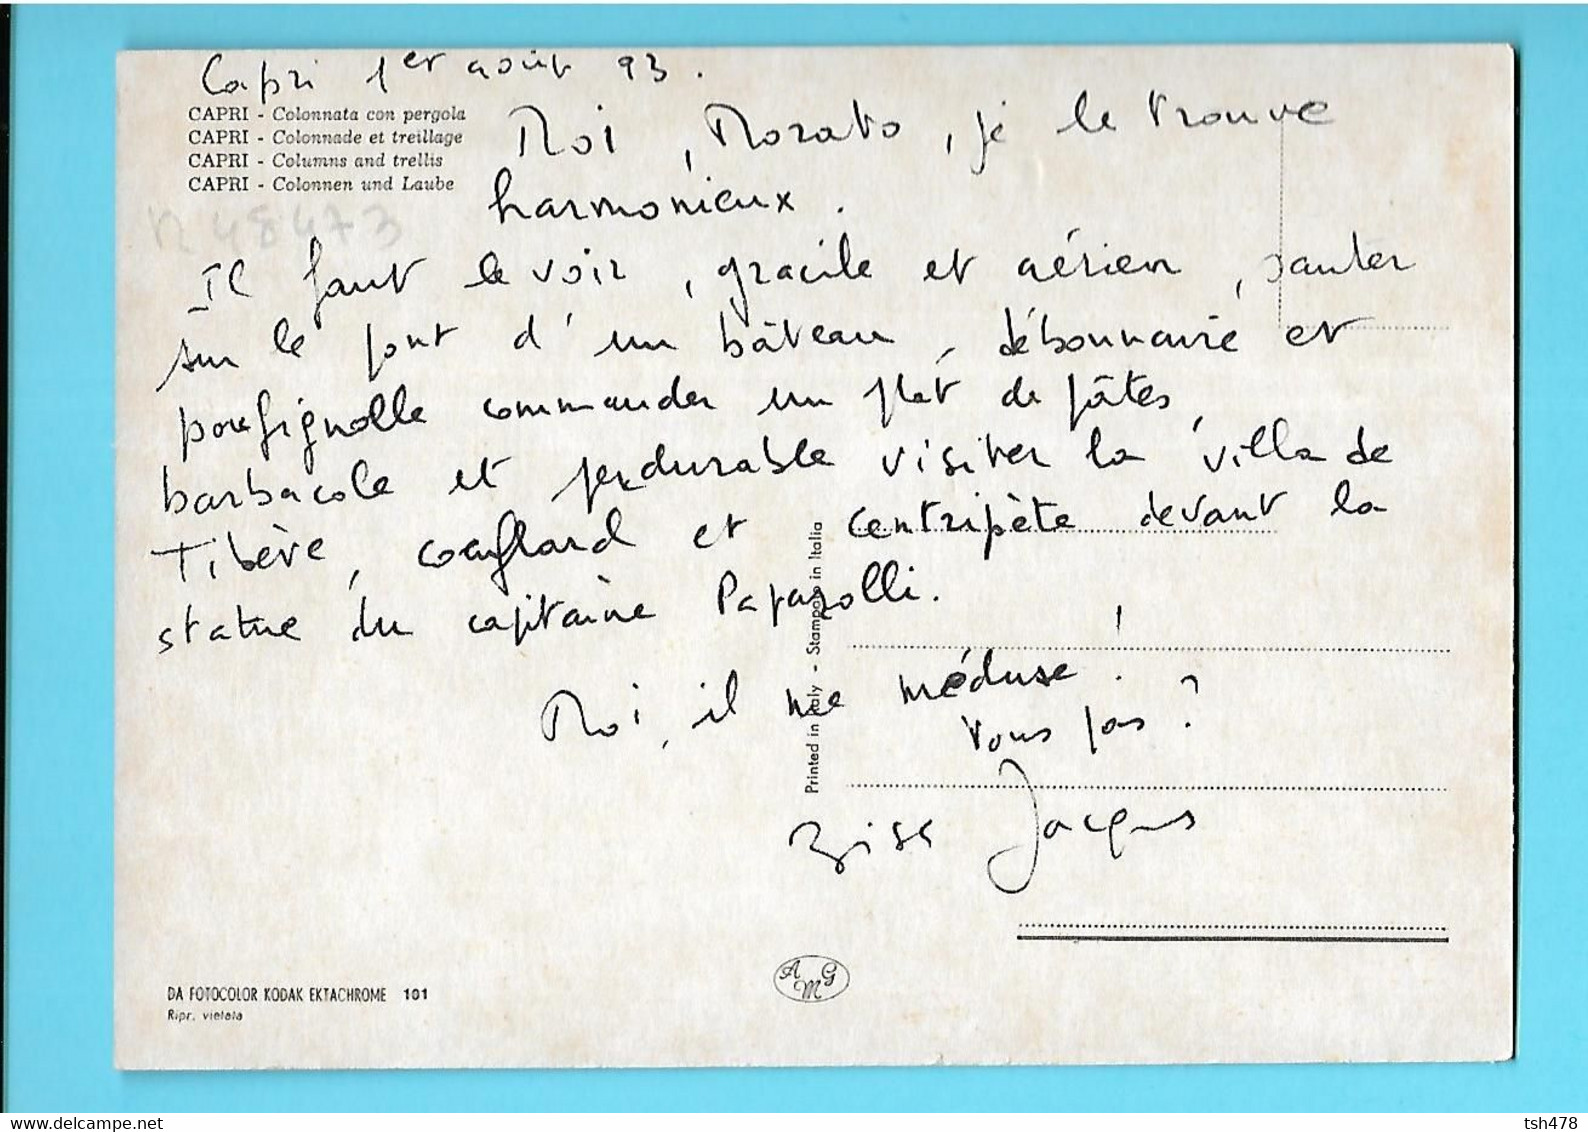 Capri 1er août 93.
CAPRI - Colonnata con pergola
CAPRI - Colonnade et treillage
CAPRI - Columns and trellis
CAPRI - Colonnen und Laube
n 48473
Moi, Morato, je le trouve
harmonieux.
Il faut le voir, gracile et aérien, sauter
sur le pont d'un bâteau, débonnaire et
commander un plat de pâtes,
barbacole et perdurable visiter la villa de
Tibère, et centripète devant la
statue du capitaine Paparolli.
Moi, il me méduse!
Vous pas?
Bises Jacques
Printed in Italy - Stampato in Italia
A M G
DA FOTOCOLOR KODAK EKTACHROME 101
Ripr. vietata
www.delcampe.net
tsh478